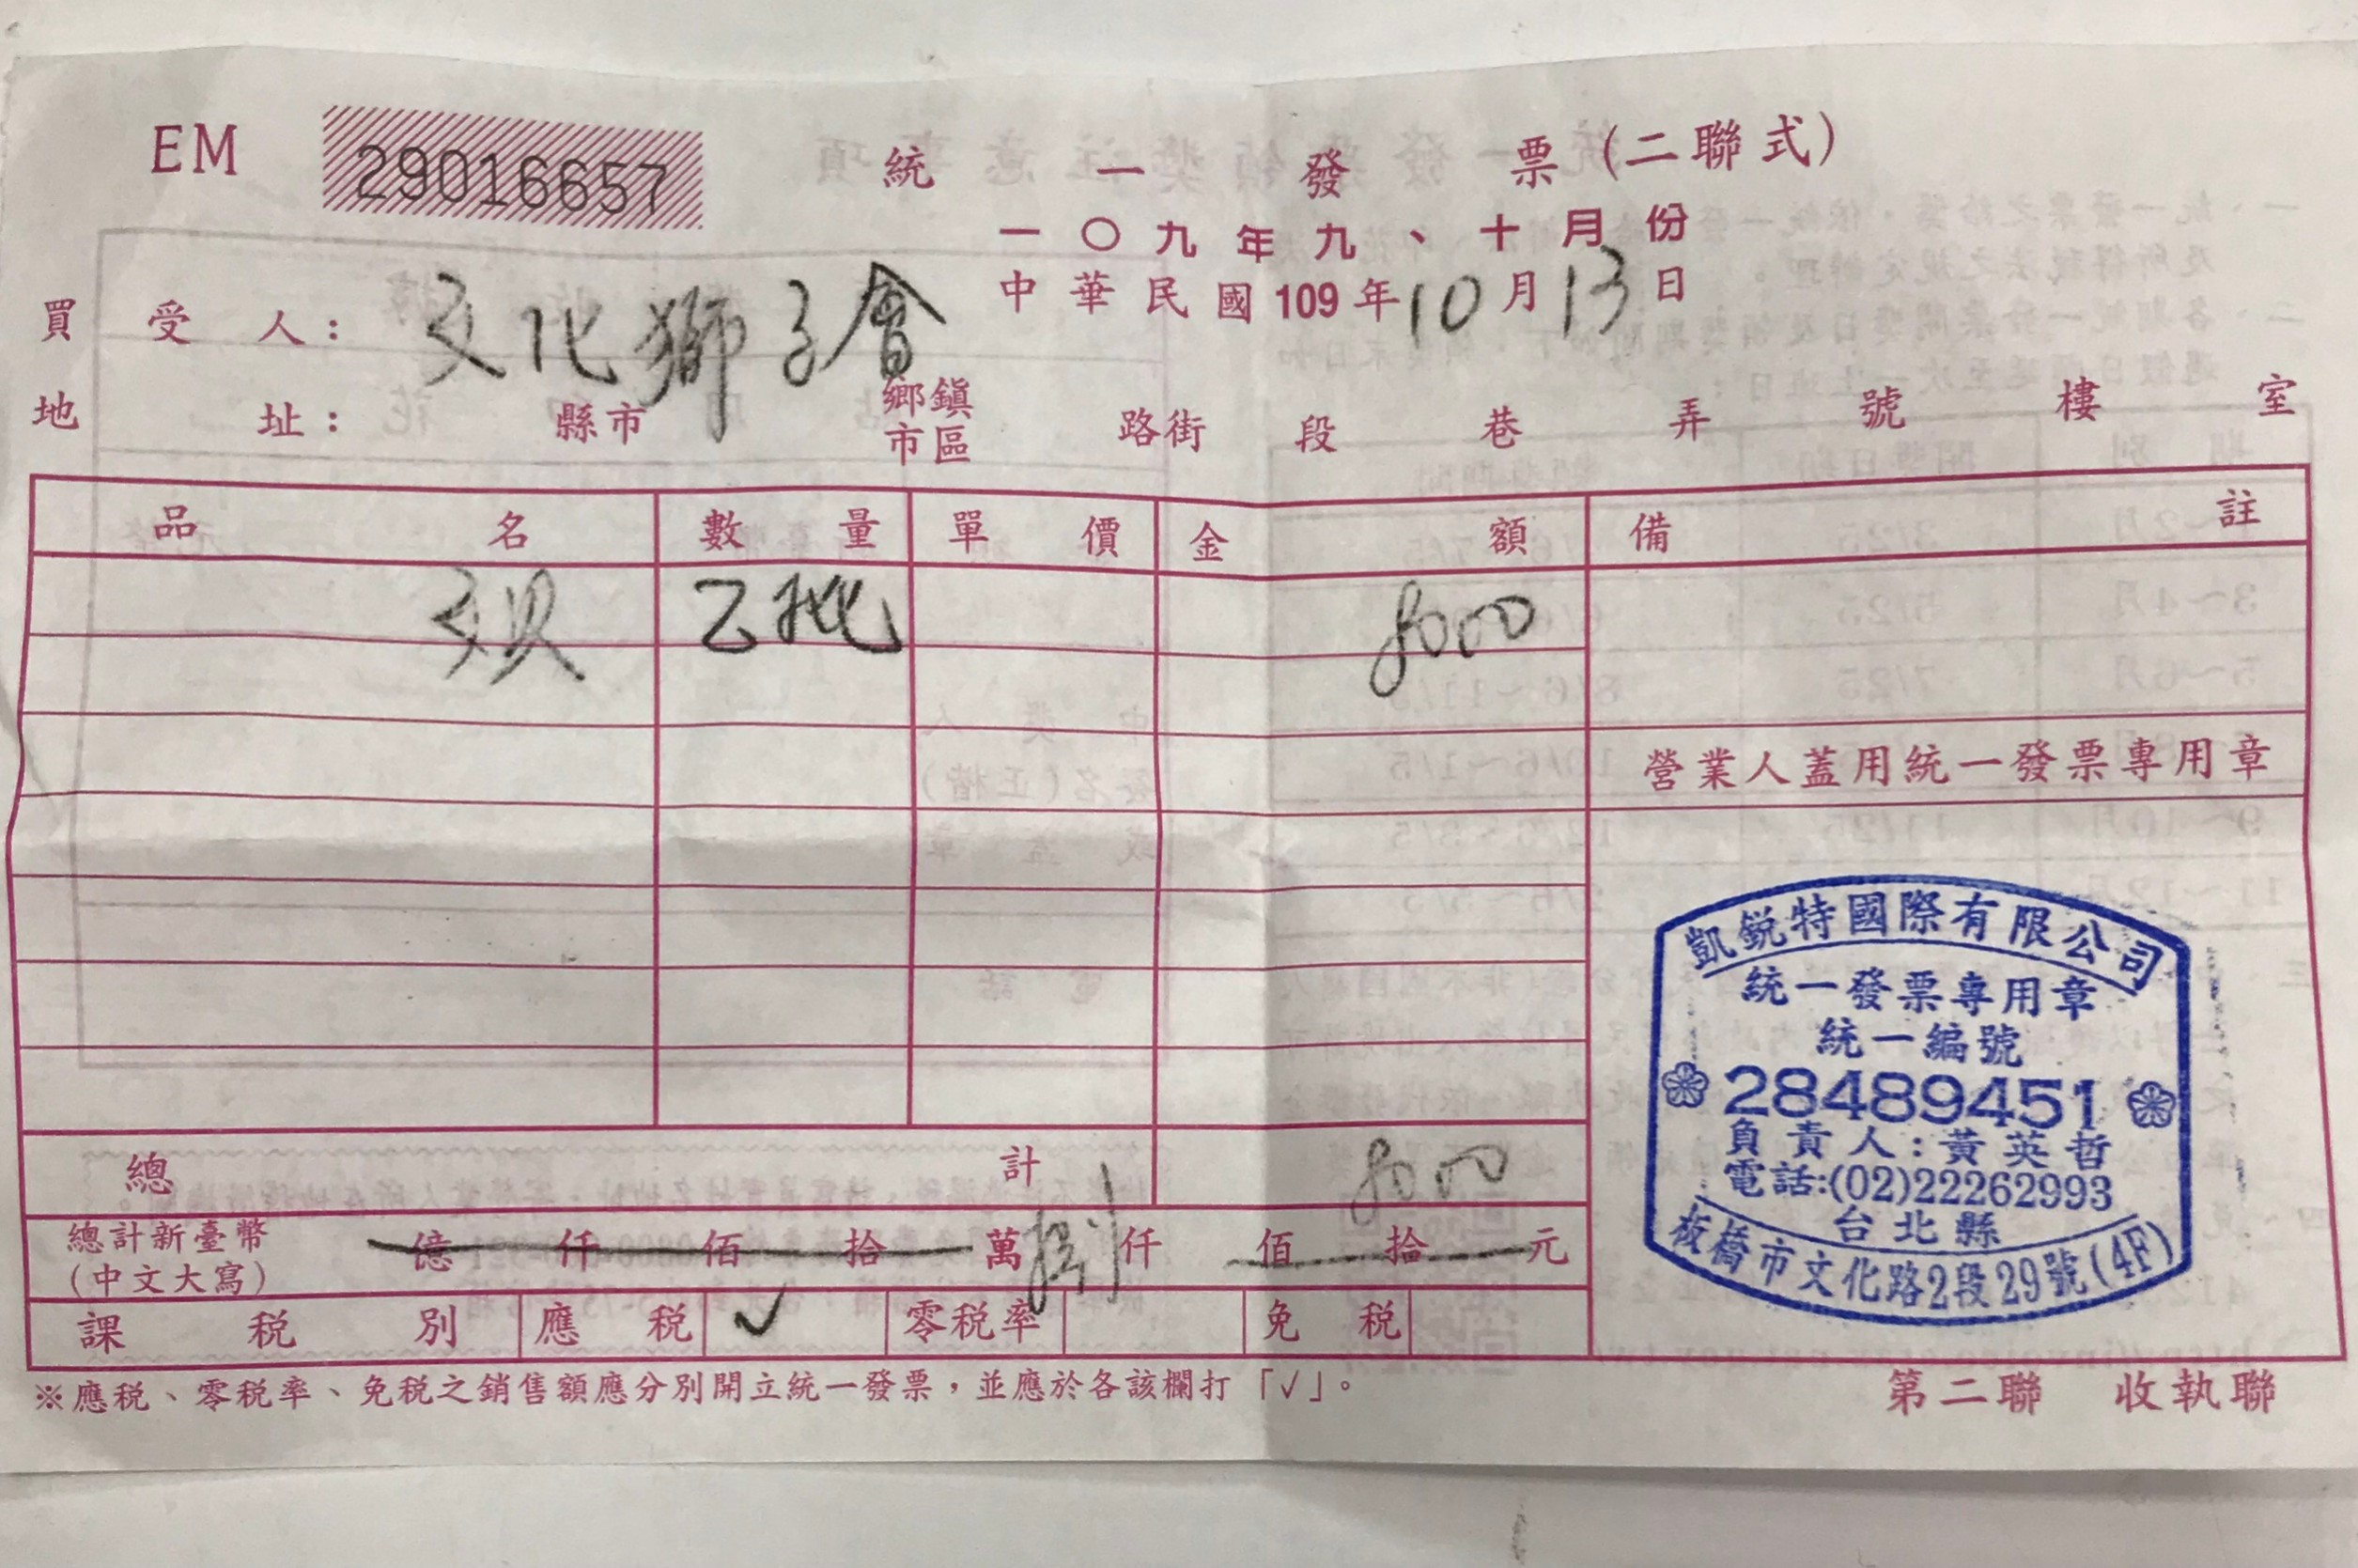 EM 29016657 統一發票(二聯式)
一〇九年九、十月份
中華民國109年10月13日
買受人：文化獅子會
地址：縣市 鄉鎮市區 路街 段 巷 弄 號 樓 室
品名 數量 單價 金額 備註
乙批 8000
營業人蓋用統一發票專用章
凱銳特國際有限公司
統一發票專用章
統一編號
28489451
負責人:黃英哲
電話:(02)22262993
台北縣
板橋市文化路2段29號(4F)
總計 8000
總計新臺幣(中文大寫) 億 仟 佰 拾 萬 捌 仟 佰 拾 元
課稅別 應稅 ✓ 零稅率 免稅
※應稅、零稅率、免稅之銷售額應分別開立統一發票，並應於各該欄打「✓」。
第二聯 收執聯